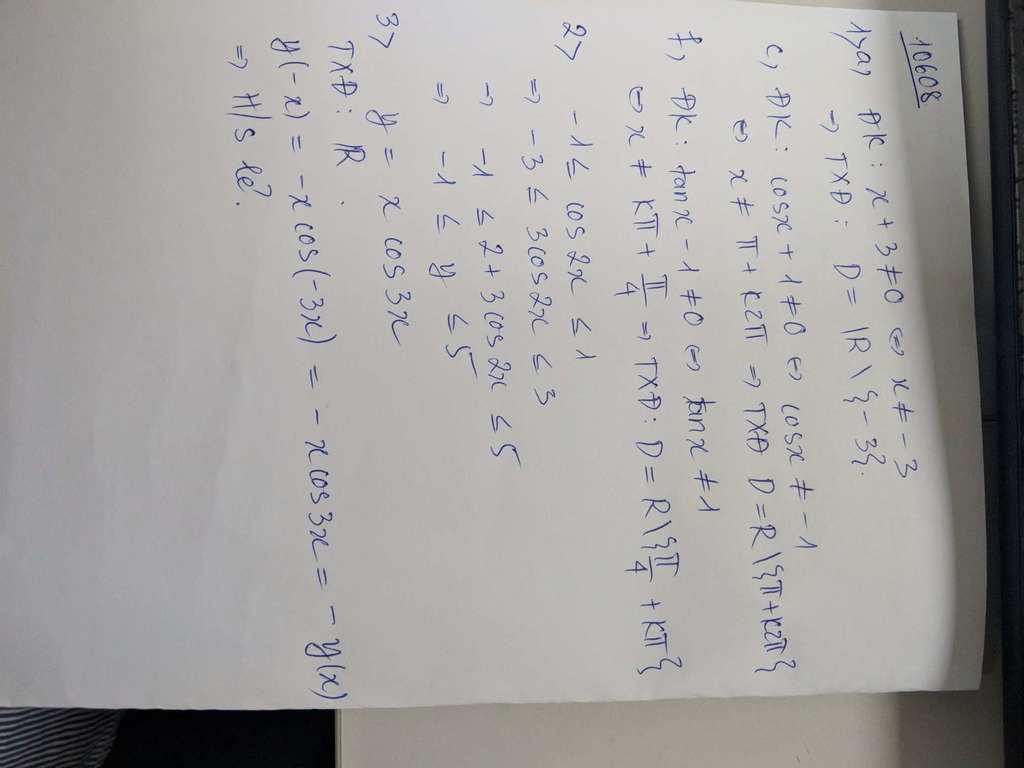 10608
1> a, ĐK: x + 3 ≠ 0 ⇔ x ≠ -3
→ TXĐ: D = ℝ \ {-3}.
c, ĐK: cosx + 1 ≠ 0 ⇔ cosx ≠ -1
⇔ x ≠ π + k2π ⇒ TXĐ D = R \ {π + k2π}
f, ĐK: tanx - 1 ≠ 0 ⇔ tanx ≠ 1
⇔ x ≠ kπ + π/4 ⇒ TXĐ: D = R \ {π/4 + kπ}
2> -1 ≤ cos 2x ≤ 1
⇒ -3 ≤ 3cos 2x ≤ 3
→ -1 ≤ 2 + 3cos 2x ≤ 5
⇒ -1 ≤ y ≤ 5
3> y = x cos 3x
TXĐ: R.
y(-x) = -x cos(-3x) = -x cos 3x = -y(x)
⇒ H/s lẻ.